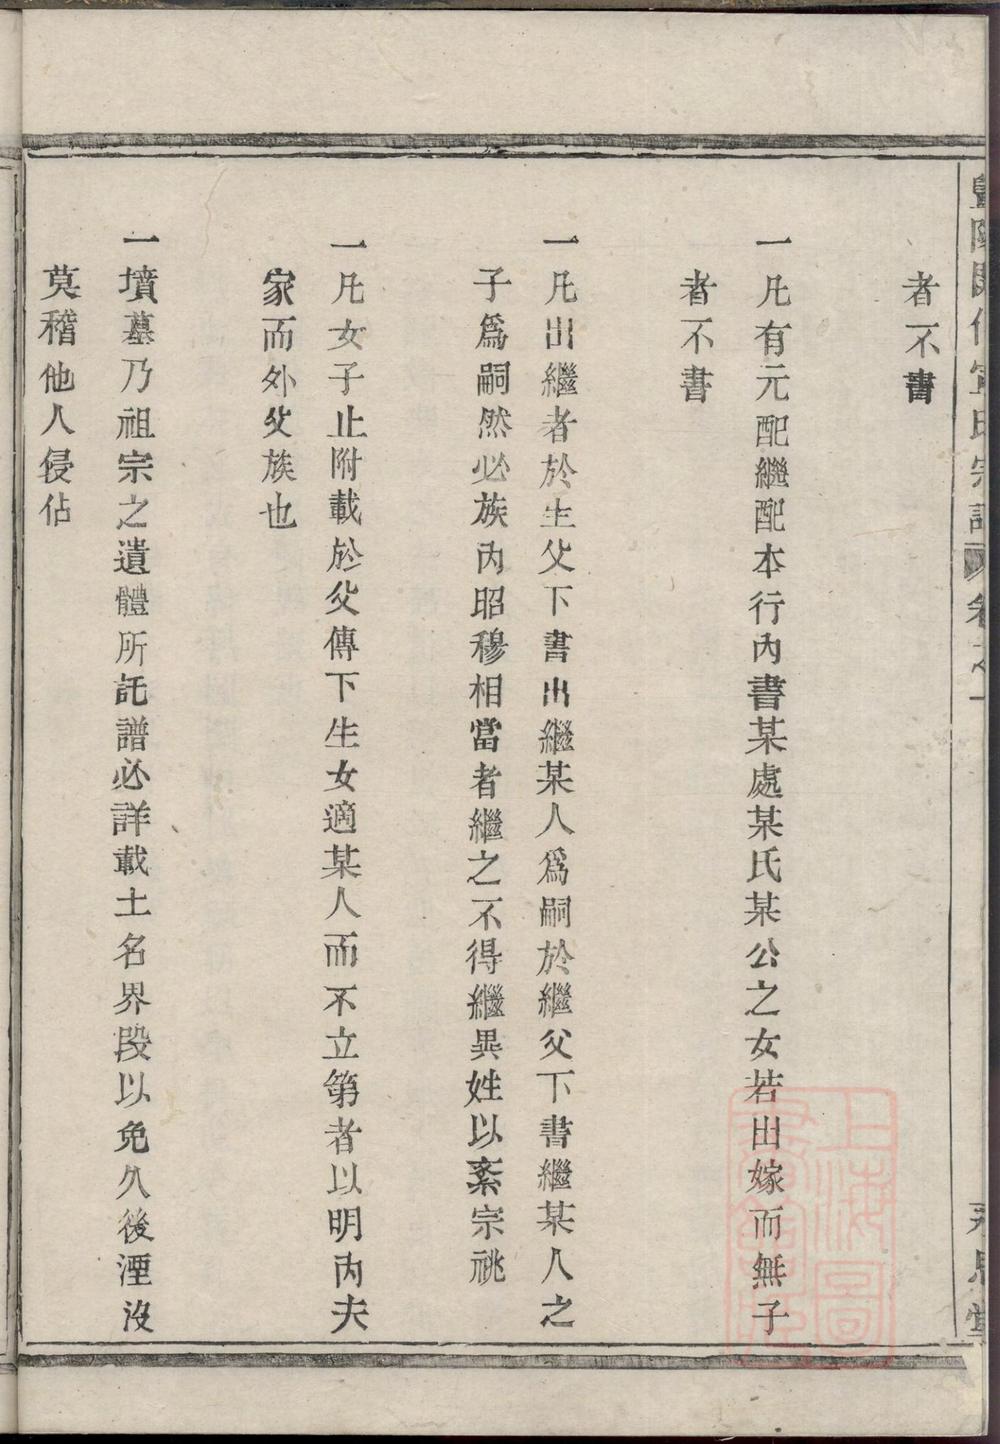 者不書
一凡有元配繼配本行內書某處某氏某公之女若出嫁而無子
者不書
一凡出繼者於生父下書出繼某人爲嗣於繼父下書繼某人之
子爲嗣然必族內昭穆相當者繼之不得繼異姓以紊宗祧
一凡女子止附載於父傳下生女適某人而不立第者以明內夫
家而外父族也
一墳墓乃祖宗之遺體所託譜必詳載土名界段以免久後湮沒
莫稽他人侵佔
上海圖
書館藏